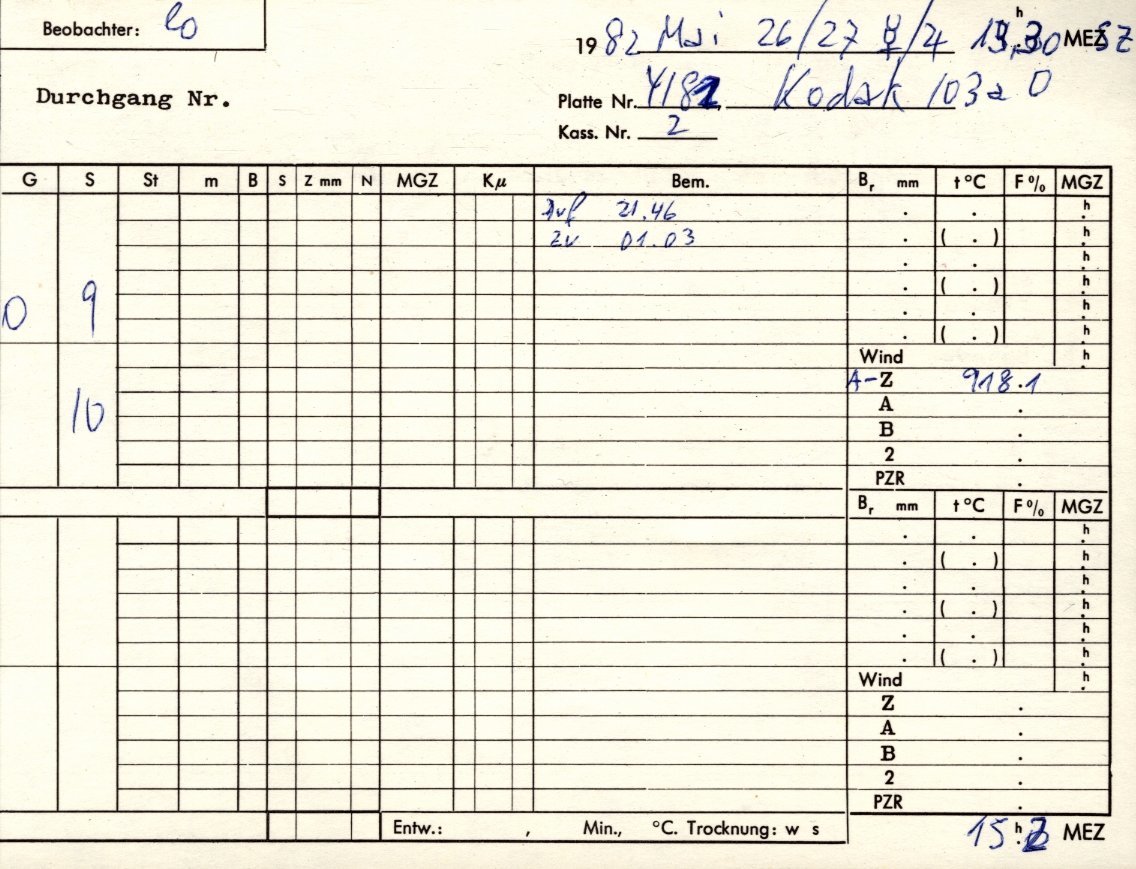 Beobachter: Lo
1982 Mai 26/27 ☿/4 19h,30 MESZ
Durchgang Nr.
Platte Nr. 4182, Kodak 103a O
Kass. Nr. 2
G S St m B S Z mm N MGZ Kμ Bem. Br mm t °C F % MGZ
Auf 21.46 . . .h
Zu 01.03 . ( . ) .h
. . .h
0 9 . ( . ) .h
. . .h
. ( . ) .h
Wind .h
A-Z 918.1
10 A .
B .
2 .
PZR .
Br mm t °C F % MGZ
. . .h
. ( . ) .h
. . .h
. ( . ) .h
. . .h
. ( . ) .h
Wind .h
Z .
A .
B .
2 .
PZR .
Entw.: , Min., °C. Trocknung: w s
15h. MEZ